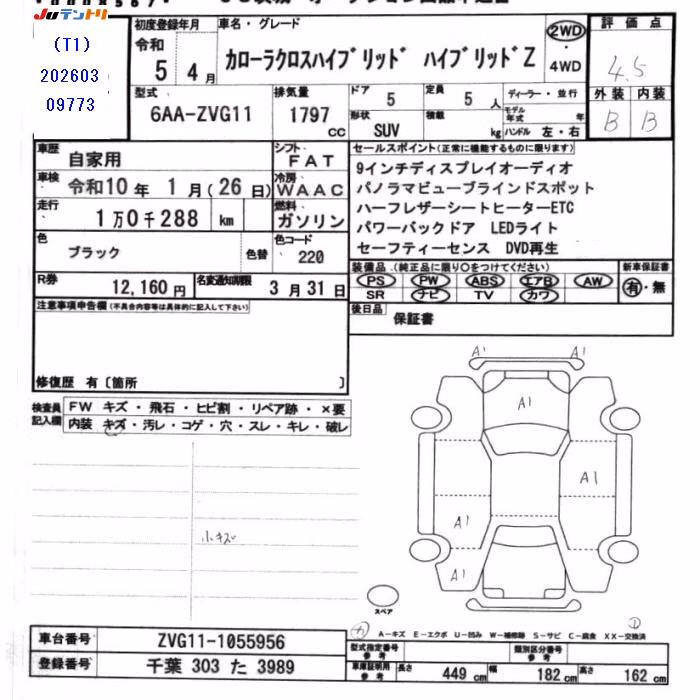 Juテントリ
(T1)
202603
09773
初度登録年月
令和
5年 4月
車名・グレード
カローラクロスハイブリッド ハイブリッドZ
2WD
・
4WD
評価点
4.5
外装 内装
B B
型式
6AA-ZVG11
排気量
1797
CC
ドア
5
定員
5人
形状
SUV
積載
kg
ディーラー・並行
モデル年式 年
ハンドル 左・右
車歴
自家用
シフト
FAT
車検
令和10年 1月(26日)
冷房
WAAC
走行
1万0千288 km
燃料
ガソリン
色
ブラック
色替
色コード
220
R券
12,160円
名変通知期限
3月31日
セールスポイント(正常に機能するものに限ります)
9インチディスプレイオーディオ
パノラマビューブラインドスポット
ハーフレザーシートヒーターETC
パワーバックドア LEDライト
セーフティーセンス DVD再生
装備品(純正品に限り○をつけてください)
PS PW ABS エアB AW
SR ナビ TV カワ
新車保証書
有・無
後日品
保証書
注意事項申告欄(不具合内容等は具体的に記入して下さい)
修復歴 有〔箇所 〕
検査員記入欄
FW キズ・飛石・ヒビ割・リペア跡・×要
内装 キズ・汚レ・コゲ・穴・スレ・キレ・破レ
小キズ
A1
A1
A1
A1
A1
A1
スペア
A-キズ E-エクボ U-凹み W-補修跡 S-サビ C-腐食 XX-交換済
車台番号
ZVG11-1055956
登録番号
千葉 303 た 3989
型式指定番号
参考
類別区分番号
参考
車庫証明用
参考
長さ 449 cm 幅 182 cm 高さ 162 cm